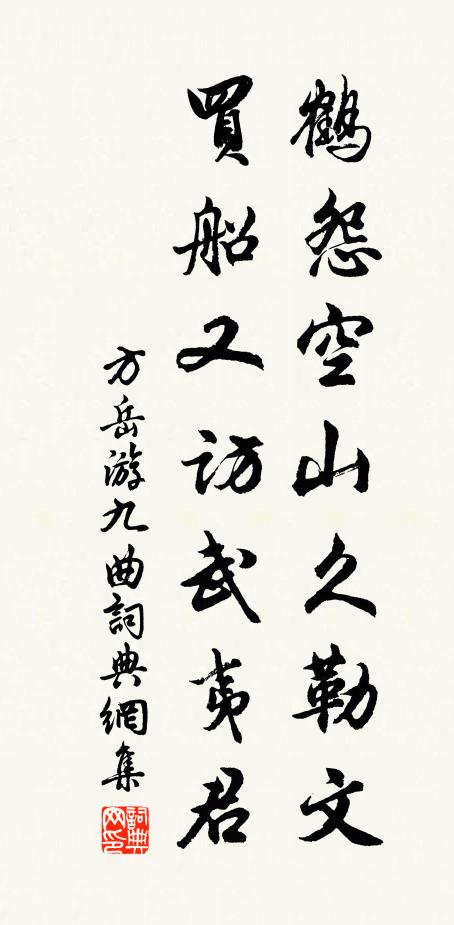 鶴怨空山久勒文
買船又訪武夷君
方岳游九曲詞典網集
詞典
网印